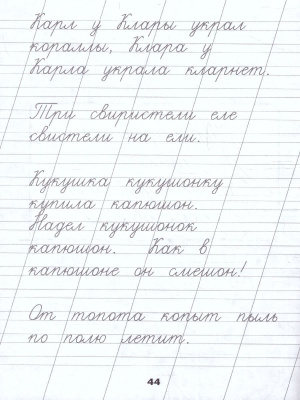 Карл у Клары украл
кораллы, Клара у
Карла украла кларнет.
Три свиристели еле
свистели на ели.
Кукушка кукушонку
купила капюшон.
Надел кукушонок
капюшон. Как в
капюшоне он смешон!
От топота копыт пыль
по полю летит.
44